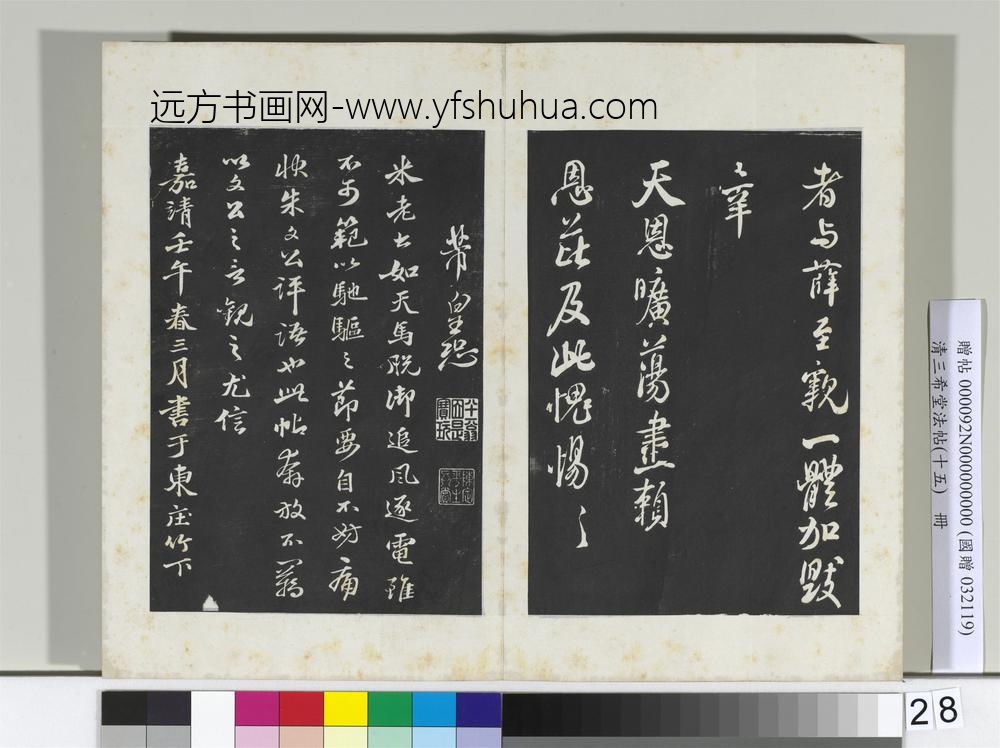 远方书画网-www.yfshuhua.com
者与薛至親一體加毀
之辜
天恩曠蕩盡賴
恩芘及此愧惕之
芾皇恐
十翁
米老書如天馬脫御追風逐電雖
不可範以馳驅之節要自不妨痛
快朱文公評語也此帖奔放不羈
以文公之言觀之尤信
嘉靖壬午春三月書于東庄竹下
贈帖 0000092N000000000 (國贈 032119)
清三希堂法帖(十五) 冊
28